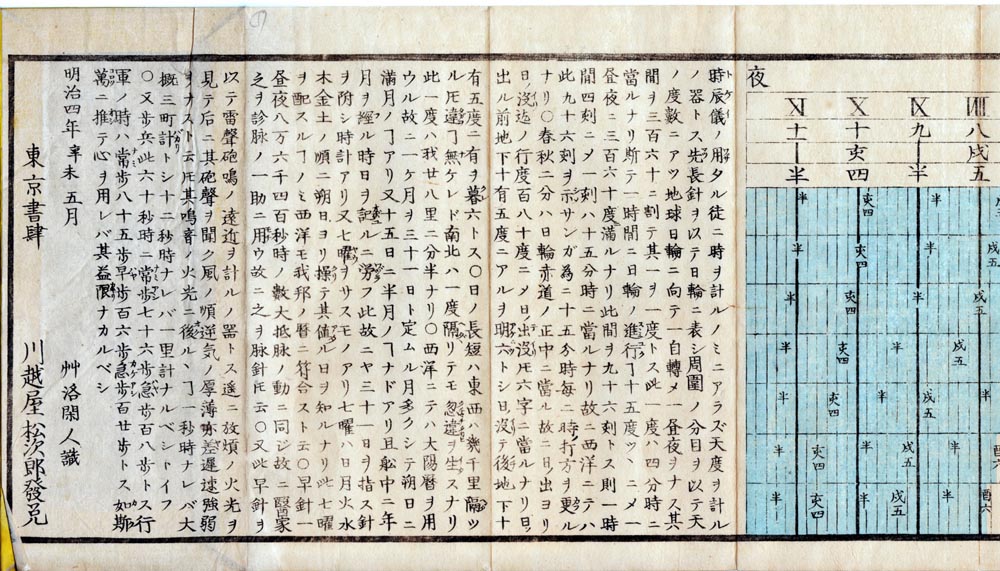 夜
Ⅷ Ⅸ Ⅹ Ⅺ
八 九 十 十一
戌 半 亥 半
五 四
時辰儀ノ用タル徒ニ時ヲ計ルノミニアラズ天度ヲ計ル
ノ器トス先長針ヲ以テ日輪ニ表シ周圍ノ分目ヲ以テ天
ノ度數ニアツ地球日輪ニ向テ一自轉メ一昼夜ヲナス其
間ヲ三百六十ニ割テ其一ヲ一度トス此一度ハ四分時ニ
當ルナリ斯テ一時間ニ日輪ノ進行ヿ十五度ツヽニメ一
昼夜ニ三百六十度滿ルナリ此間ヲ九十六刻トス則一時
間四刻ニメ一刻ハ十五分時ニ當ルナリ故ニ西洋ニテハ
此九十六刻ヲ示サンガ為ニ十五分時每ニ時打方ヲ更ル
ナリ〇春秋二分ハ日輪赤道ノ正中ニ當ル故ニ日ノ出ヨリ
日ノ沒迄ノ行度百八十度ニメ日出沒𪜈六字ニ當ルナリ日ノ
出ル前地下十有五度ニアルヲ明六トシ日ノ沒テ後地下十
有五度ニ有ヲ暮六トス〇日ノ長短ハ東西ハ幾千里隔ツ
ル𪜈違ヿ無ケレド南北ハ一度隔リテモ忽違ヲ生スナリ
此一度ハ我廿八里二分半ナリ〇西洋ニテハ大陽曆ヲ用
ウル故ニ一ケ月ヲ三十一日ト定ム月多クシテ朔日ニ
滿月ノヿアリ又十五日ニ半月ノヿナドアリ且船中ニ年
月ヲ經ル時日ヲ記ルニ労フ此故ニヤ三十一日ヲ指ス針
ヲ附シ時計アリ又七曜ヲサスモノアリ七曜ハ日月火水
木金土ノ順ニ朔日ヨリ操テ其値ル日ヲ知ルナリ此七曜
ヲ配スルヿノミ西洋モ我邦ノ曆ニ符合スト云〇早針一
昼夜八万六千四百秒時ノ數大抵脉ノ動ニ同ジ故ニ醫家
之ヲ診脉ノ一助ニ用ウ故ニ之ヲ脉針𪜈云〇又此早針ヲ
以テ雷聲砲鳴ノ遠近ヲ計ルノ器トス遥ニ放煩ノ火光ヲ
見テ后ニ其砲聲ヲ聞ク風ノ順逆気ノ厚薄亦差遲速強弱
ヲナスト云𪜈其鳴音ノ火光ニ後ルヽヿ一秒時ナレバ大
概三町計トシ十二秒時ナレバ一里計ナルベシトイフ
〇又歩兵此六十秒時ニ常歩七十六歩急歩百八歩トス行
軍ノ時ハ常歩八十五歩早歩百六歩急歩百廿歩トス如斯
萬ニ推テ心ヲ用レバ其益限ナカルベシ
明治四年辛未五月
艸洛閑人識
東京書肆 川越屋松次郎發兌